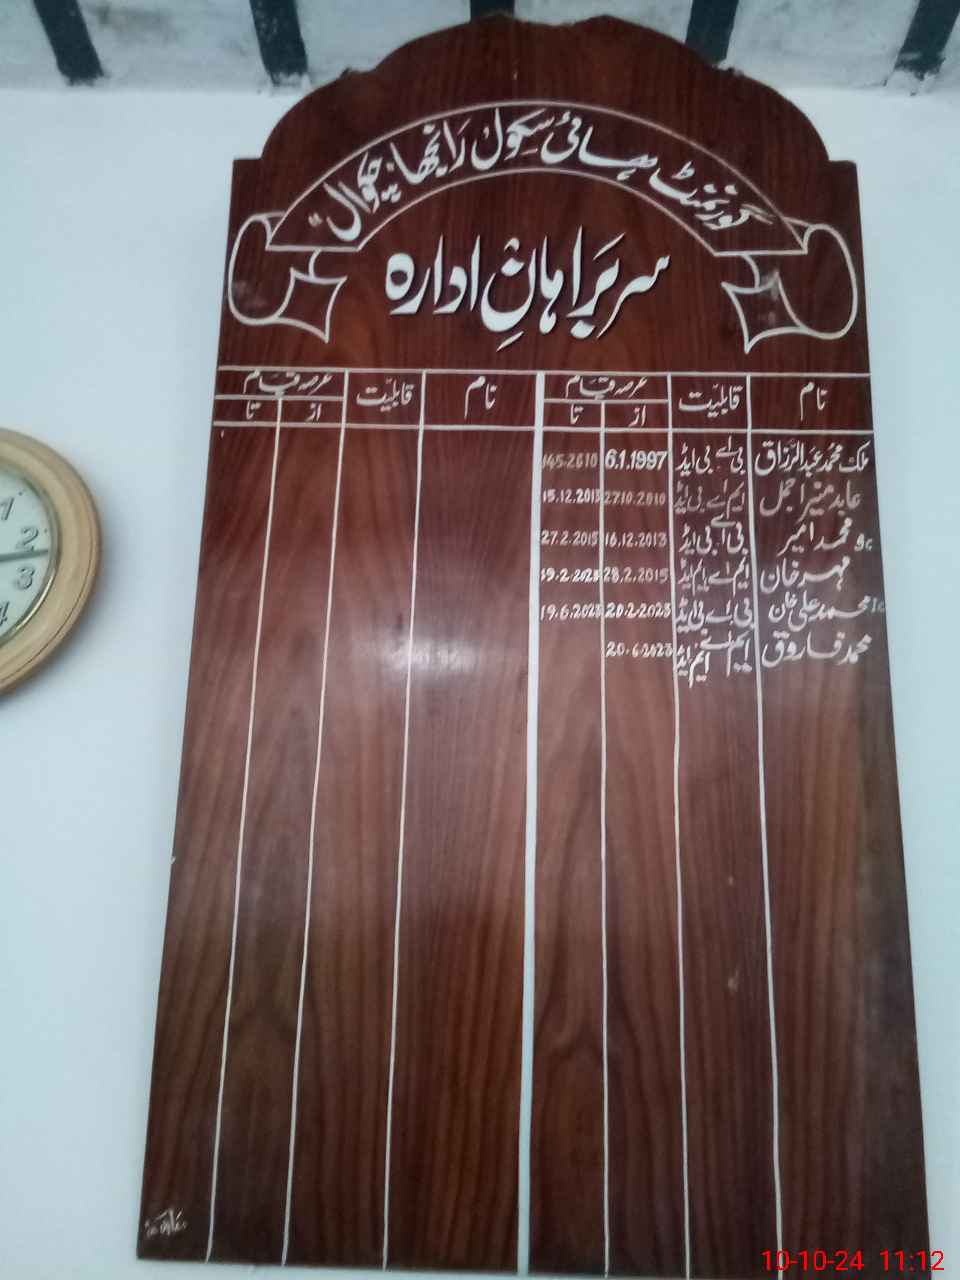 گورنمنٹ ہائی سکول رانجھا چکوال
سربراہانِ ادارہ
نام قابلیّت عرصہ قیام نام قابلیّت عرصہ قیام
از تا از تا
ملک محمد عبدالرزاق بی اے بی ایڈ 6.1.1997 14.5.2010
عابد منیر اجمل ایم اے بی ایڈ 27.10.2010 15.12.2013
محمد امیر بی اے بی ایڈ 16.12.2013 27.2.2015
مہر خان ایم اے ایم ایڈ 28.2.2015 19.2.2023
Ic محمد علی خان بی اے بی ایڈ 20.2.2023 19.6.2023
محمد فاروق ایم اے ایم ایڈ 20.6.2023
1
2
3
4
10-10-24 11:12